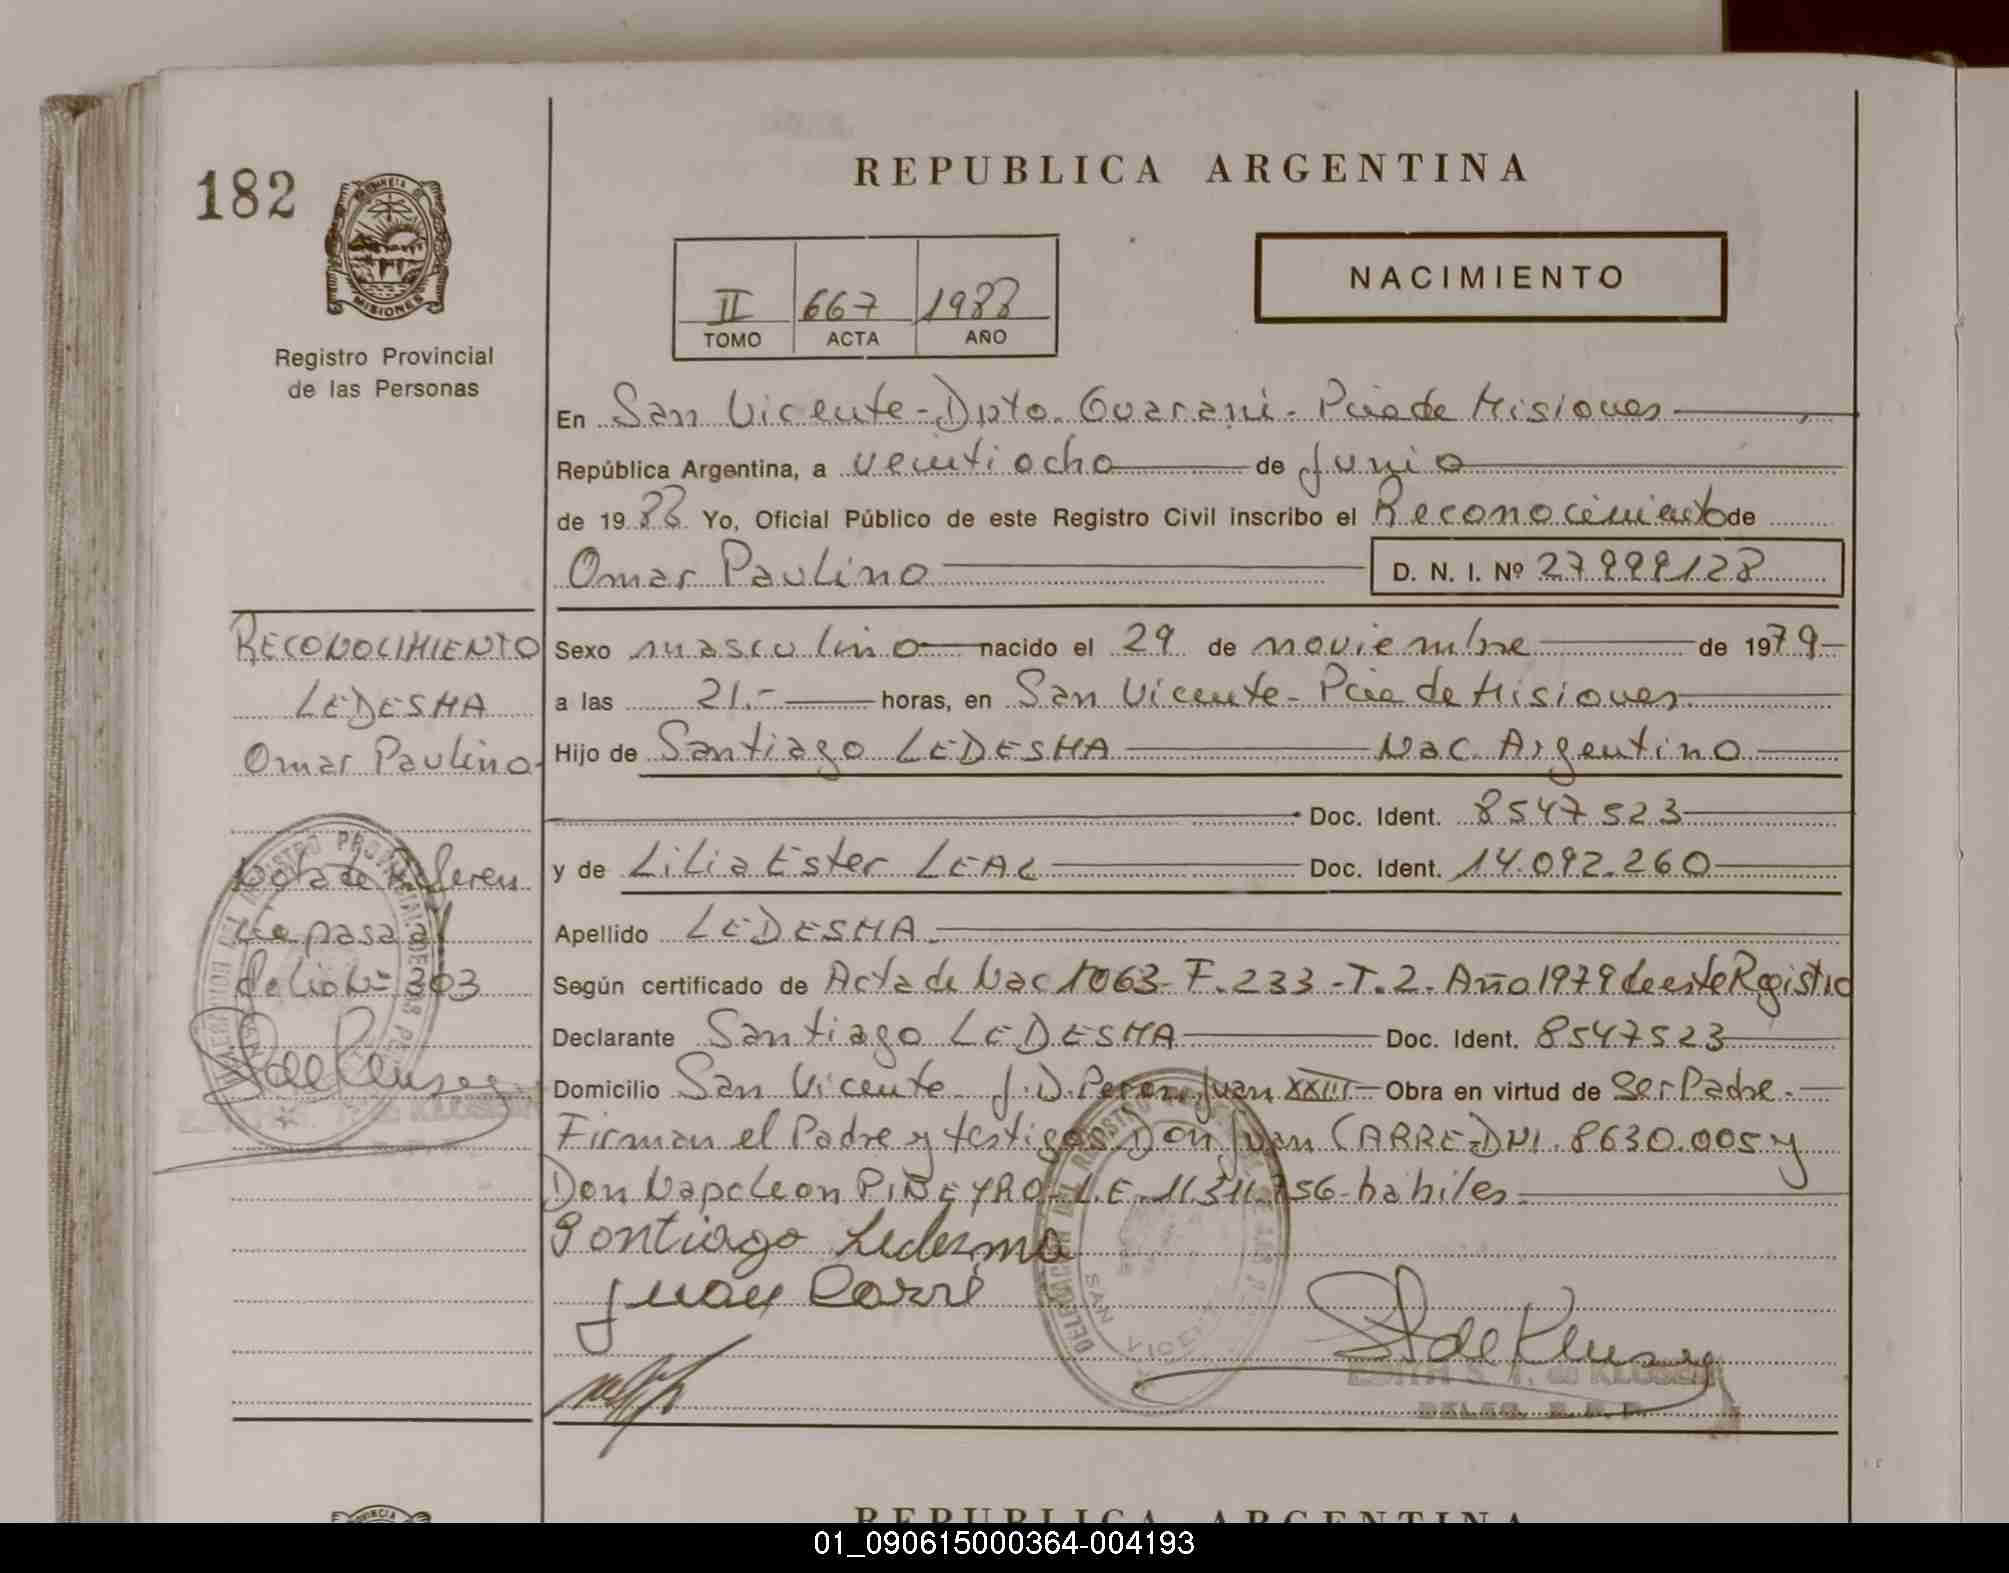 182
PROVINCIA DE
MISIONES
Registro Provincial
de las Personas
REPUBLICA ARGENTINA
NACIMIENTO
II 667 1988
TOMO ACTA AÑO
En San Vicente - Dpto. Guarani - Pcia de Misiones
República Argentina, a veintiocho de Junio
de 1988 Yo, Oficial Público de este Registro Civil inscribo el Reconocimiento de
Omar Paulino D. N. I. Nº 27999128
RECONOCIMIENTO
LEDESMA
Omar Paulino
Nota de Referen
cia pasa al
folio Nº 303
Sexo masculino nacido el 29 de noviembre de 1979
a las 21.- horas, en San Vicente - Pcia de Misiones
Hijo de Santiago LEDESMA Nac. Argentino
Doc. Ident. 8547523
y de Lilia Ester LEAL Doc. Ident. 14.092.260
Apellido LEDESMA
Según certificado de Acta de Nac 1063 - F. 233 - T. 2. Año 1979 de este Registro
Declarante Santiago LEDESMA Doc. Ident. 8547523
Domicilio San Vicente J. D. Peron Juan XXIII Obra en virtud de Ser Padre.
Firman el Padre y testigos Don Juan CARRE - DNI. 8630.005 y
Don Napoleon PIÑEYRO - L.E. 11.311.756 - habiles
Santiago Ledezma
Juan Carré
SAN VICENTE
EDITH S. T. de KLUSENER
DELEG. R. P. P.
REPUBLICA ARGENTINA
01_090615000364-004193